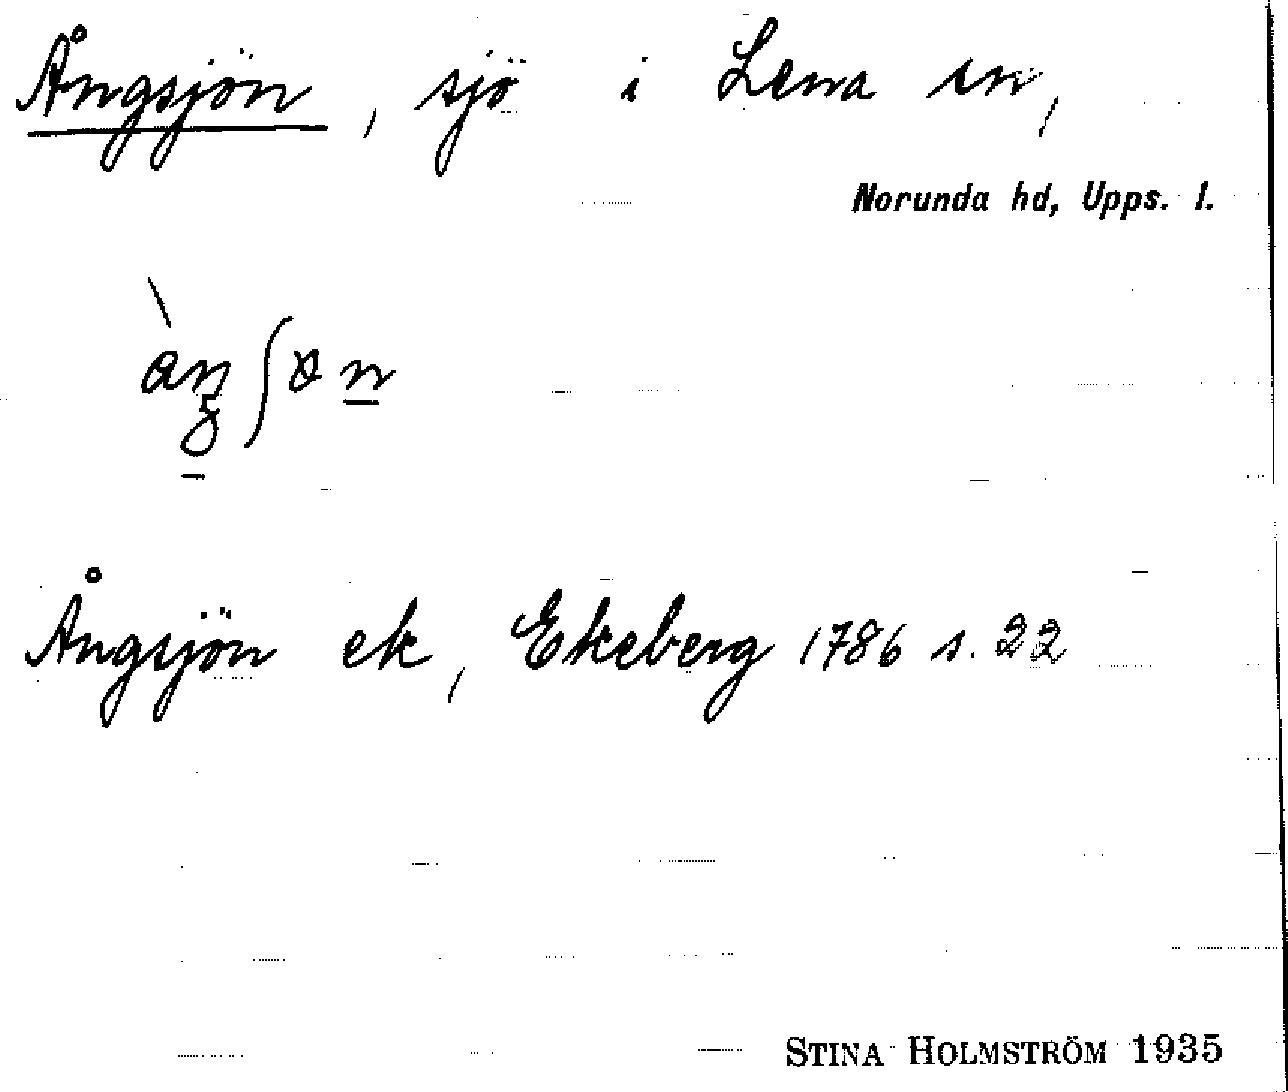 Ångsjön, sjö i Lena sn,
Norunda hd, Upps. l.
Ångsjön ek, Ekeberg 1786 s. 22
STINA HOLMSTRÖM 1935